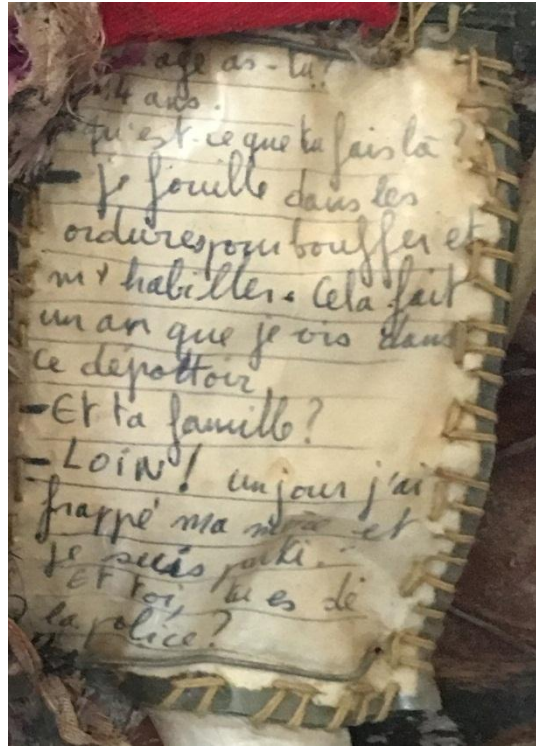 age as-tu?
14 ans.
qu'est-ce que tu fais là?
- je fouille dans les
ordures pour bouffer et
m'y habiller. Cela fait
un an que je vis dans
ce dépottoir
- Et ta famille?
- LOIN! un jour j'ai
frappé ma mère et
je suis parti.
Et toi, tu es de
la police?